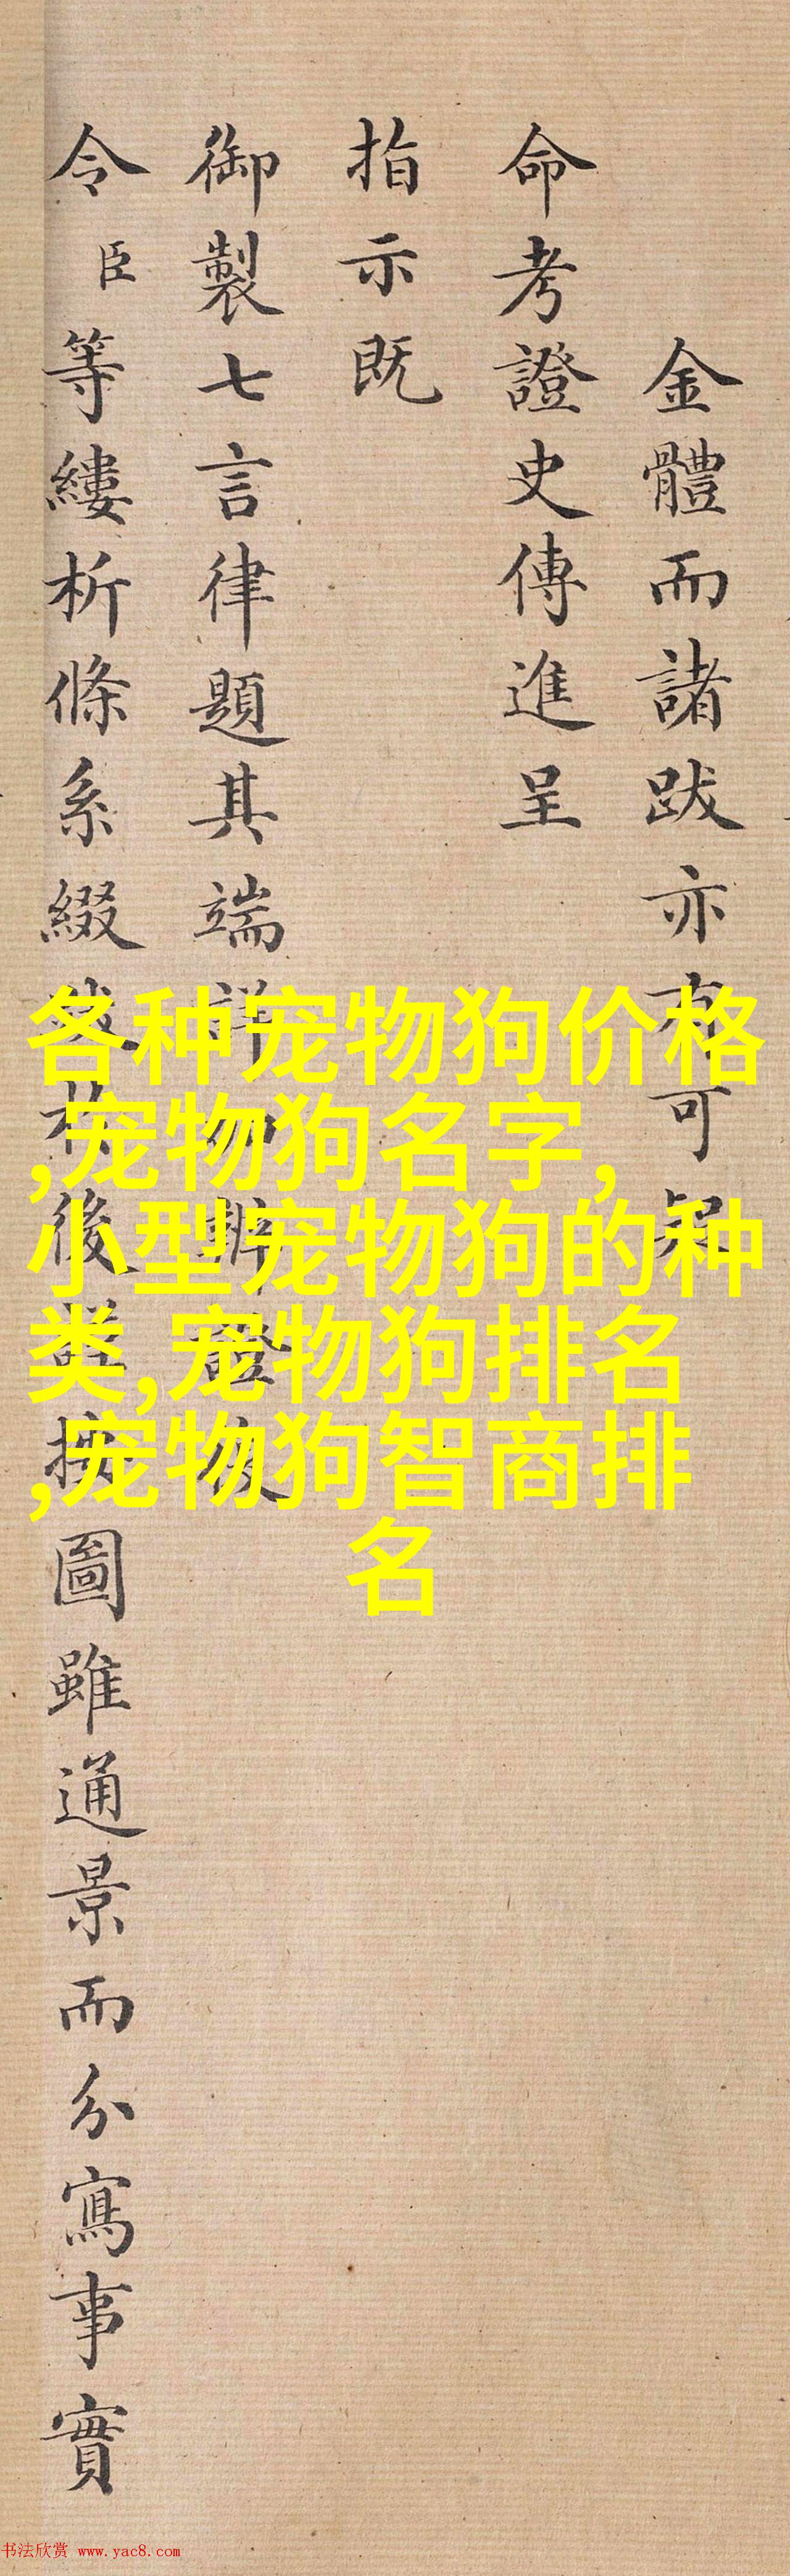 金體而諸跋亦有可疑
命考證史傳進呈
指示既
御製七言律題其端詳加辨證復
令臣等縷析條系綴
後
圖雖通景而分寫事實
各种宠物狗价格
,宠物狗名字,
小型宠物狗的种
类,宠物狗排名
,宠物狗智商排
名
书法欣赏 www.yac8.com